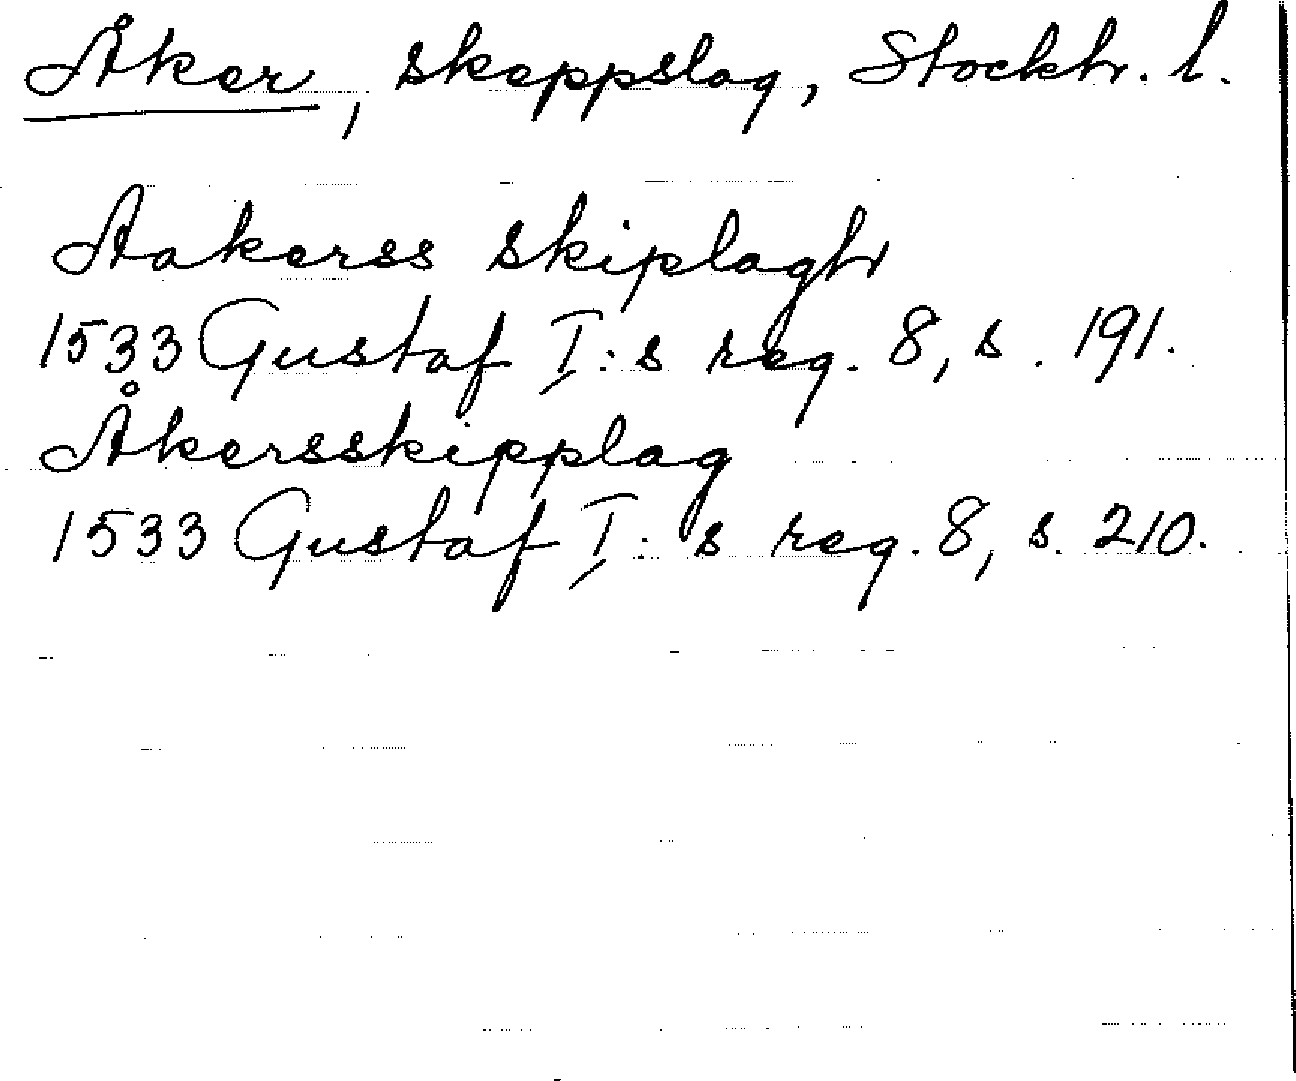 Åker, skeppslag, Stockh. l.
Aakerss skiplagh
1533 Gustaf I:s reg. 8, s. 191.
Åkersskipplag
1533 Gustaf I:s reg. 8, s. 210.